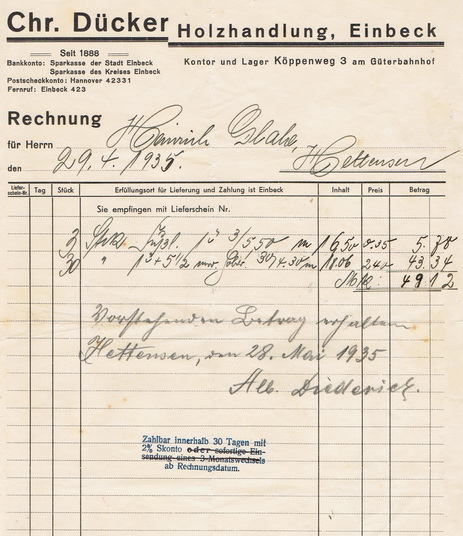 Chr. Dücker Holzhandlung, Einbeck
Seit 1888
Bankkonto: Sparkasse der Stadt Einbeck
Sparkasse des Kreises Einbeck
Postscheckkonto: Hannover 42331
Fernruf: Einbeck 423
Kontor und Lager Köppenweg 3 am Güterbahnhof
Rechnung
für Herrn Heinrich
Hettensen
den 29.4.1935.
Liefer-schein-Nr. Tag Stück Erfüllungsort für Lieferung und Zahlung ist Einbeck Inhalt Preis Betrag
Sie empfingen mit Lieferschein Nr.
2 3/5,50 m 5.78
30 " 43.34
49 12
Vorstehenden Betrag erhalten
Hettensen, den 28. Mai 1935
Alb. Diederich.
Zahlbar innerhalb 30 Tagen mit
2% Skonto oder sofortige Ein-
sendung eines 3-Monatswechsels
ab Rechnungsdatum.